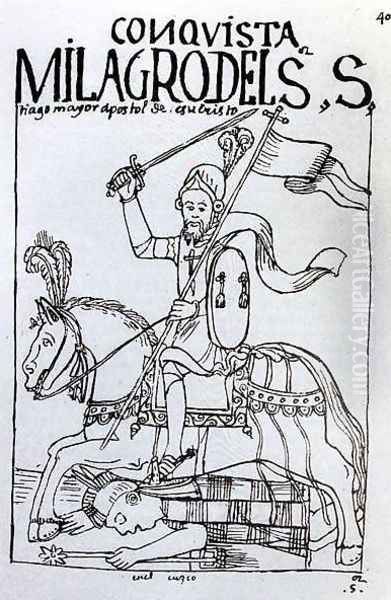 40
CONQVISTA
MILAGRODELS,S,
tiago mayor apostol de.esucristo
enel cuzco